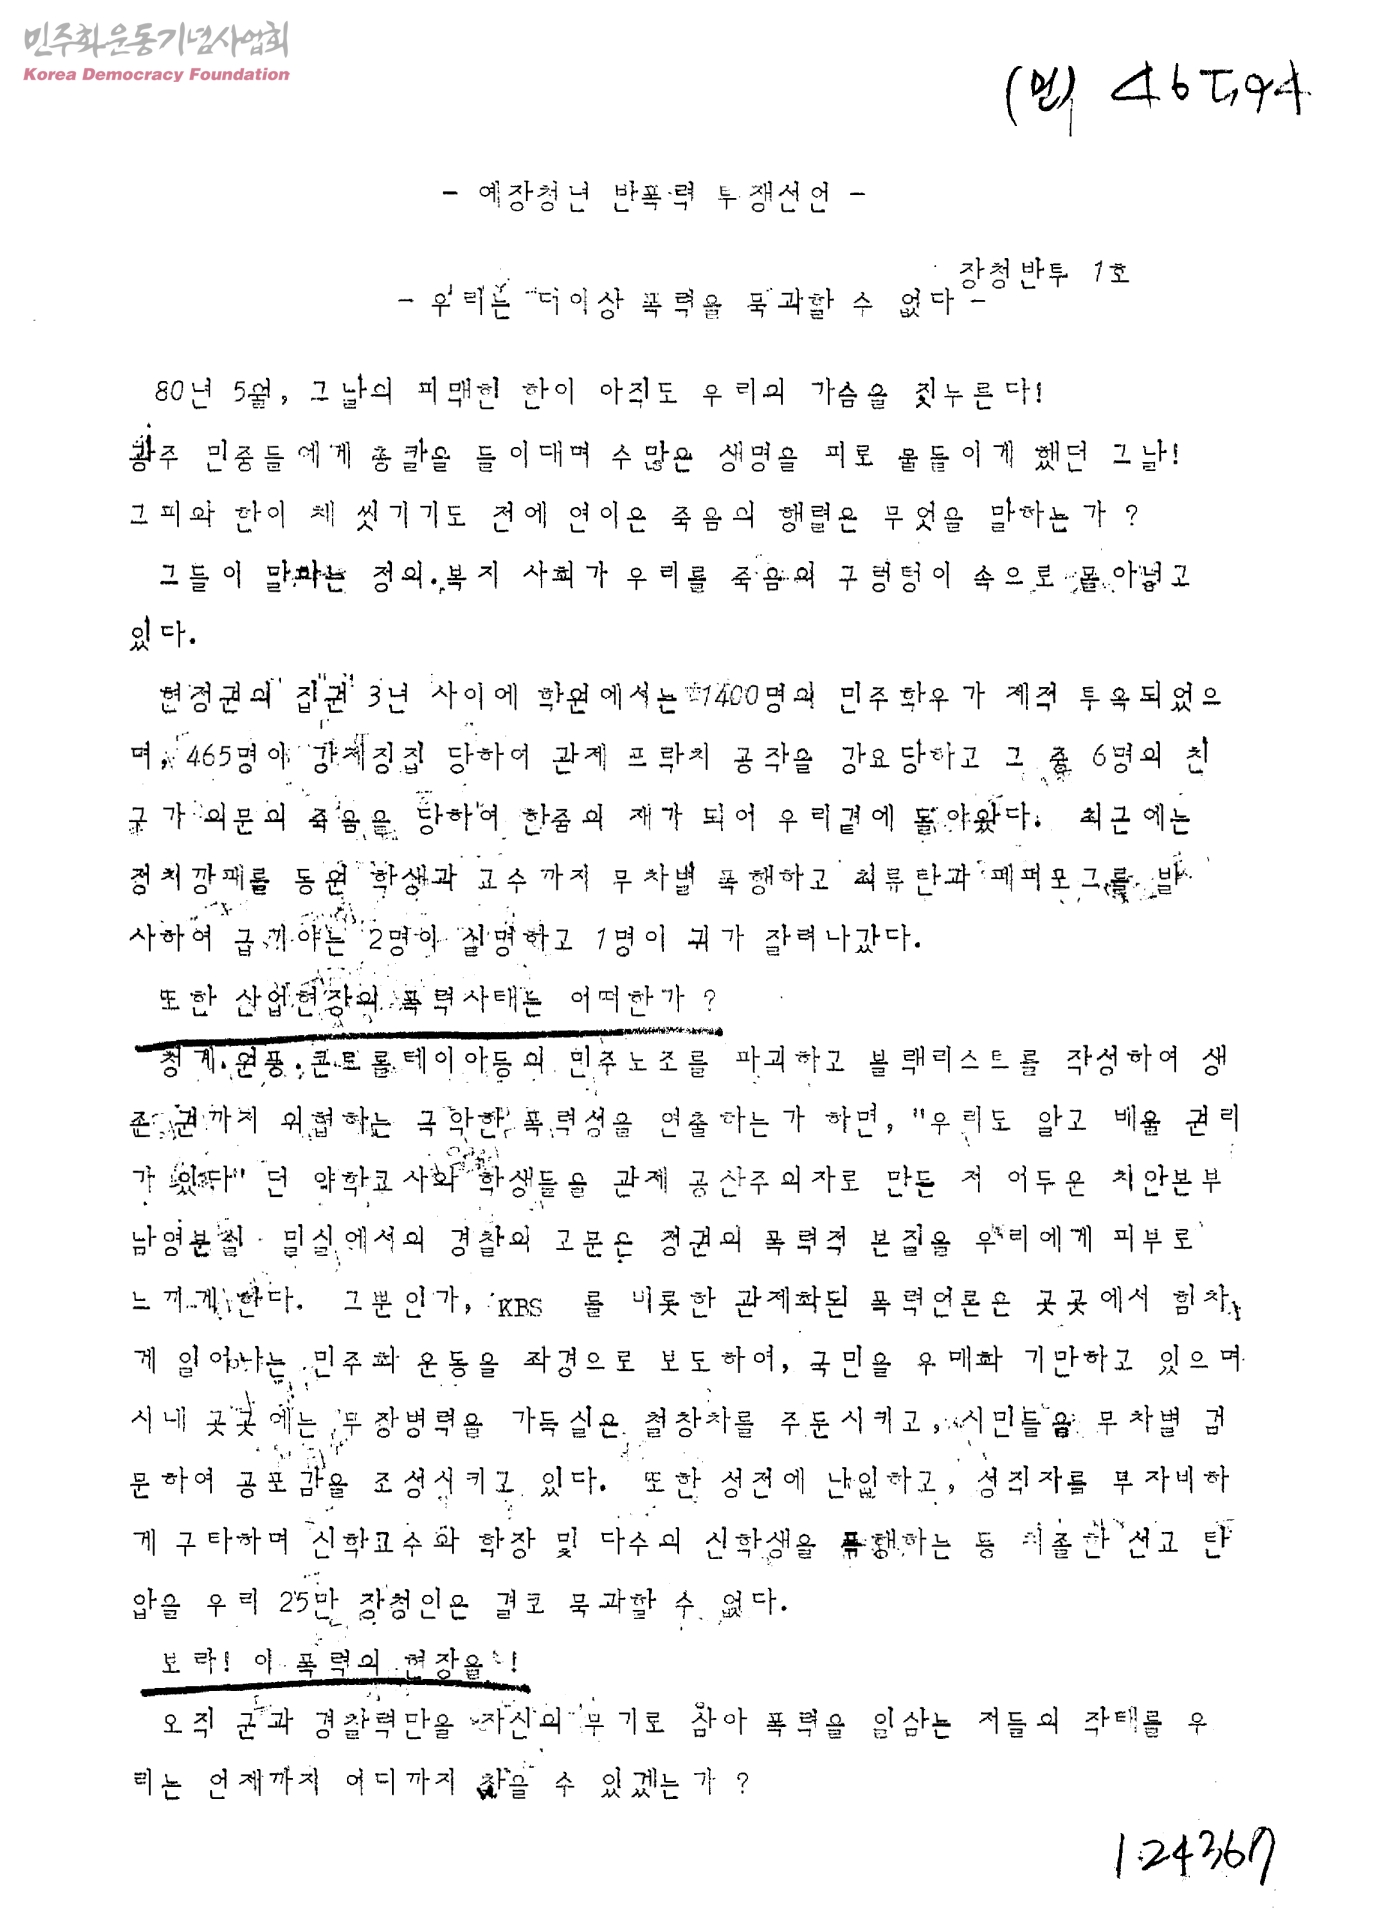 민주화운동기념사업회
Korea Democracy Foundation
(민)
- 예장청년 반폭력 투쟁선언 -
장청반투 1호
- 우리는 더이상 폭력을 묵과할 수 없다 -
80년 5월, 그날의 피맺힌 한이 아직도 우리의 가슴을 짓누른다!
광주 민중들에게 총칼을 들이대며 수많은 생명을 피로 물들이게 했던 그날!
그피와 한이 채 씻기기도 전에 연이은 죽음의 행렬은 무엇을 말하는가?
그들이 말하는 정의.복지 사회가 우리를 죽음의 구렁텅이 속으로 몰아넣고
있다.
현정권의 집권 3년 사이에 학원에서는 1400명의 민주학우가 제적 투옥되었으
며, 465명이 강제징집 당하여 관제 프락치 공작을 강요당하고 그 중 6명의 친
구가 의문의 죽음을 당하여 한줌의 재가 되어 우리곁에 돌아왔다. 최근에는
정치깡패를 동원 학생과 교수까지 무차별 폭행하고 최류탄과 페퍼포그를 발
사하여 급기야는 2명이 실명하고 1명이 귀가 잘려나갔다.
또한 산업현장의 폭력사태는 어떠한가?
청계.원풍.콘트롤데이타등의 민주노조를 파괴하고 블랙리스트를 작성하여 생
존권까지 위협하는 극악한 폭력성을 연출하는가 하면, "우리도 알고 배울 권리
가 있다" 던 야학교사와 학생들을 관제 공산주의자로 만든 저 어두운 치안본부
남영분실 밀실에서의 경찰의 고문은 정권의 폭력적 본질을 우리에게 피부로
느끼게 한다. 그뿐인가, KBS 를 비롯한 관제화된 폭력언론은 곳곳에서 힘차
게 일어나는 민주화 운동을 좌경으로 보도하여, 국민을 우매화 기만하고 있으며
시내 곳곳에는 무장병력을 가득실은 철창차를 주둔시키고, 시민들을 무차별 검
문하여 공포감을 조성시키고 있다. 또한 성전에 난입하고, 성직자를 무자비하
게 구타하며 신학교수와 학장 및 다수의 신학생을 폭행하는 등 치졸한 선교 탄
압을 우리 25만 장청인은 결코 묵과할 수 없다.
보라! 이 폭력의 현장을 !
오직 군과 경찰력만을 자신의 무기로 삼아 폭력을 일삼는 저들의 작태를 우
리는 언제까지 어디까지 참을 수 있겠는가?
124367